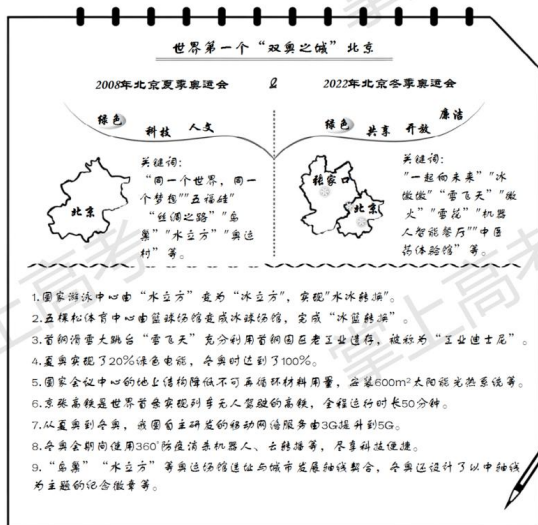 世界第一个“双奥之城”北京
2008年北京夏季奥运会 & 2022年北京冬季奥运会
绿色 科技 人文
绿色 共享 开放 廉洁
北京
关键词:
“同一个世界，同一
个梦想”“五福娃”
“丝绸之路”“鸟
巢”“水立方”“奥运
村”等。
张家口
北京
关键词:
“一起向未来”“冰
墩墩”“雪飞天”“微
火”“雪花”“机器
人智能餐厅”“中医
药体验馆”等。
1.国家游泳中心由“水立方”变为“冰立方”，实现“水冰转换”。
2.五棵松体育中心由篮球场馆变成冰球场馆，完成“冰篮转换”
3.首钢滑雪大跳台“雪飞天”充分利用首钢园区老工业遗存，被称为“工业迪士尼”。
4.夏奥实现了20%绿色电能，冬奥时达到了100%。
5.国家会议中心的地上结构降低不可再循环材料用量，安装600m²太阳能光热系统等。
6.京张高铁是世界首条实现列车无人驾驶的高铁，全程运行时长50分钟。
7.从夏奥到冬奥，我国自主研发的移动网络服务由3G提升到5G。
8.冬奥会期间使用360°防疫消杀机器人、云转播等，尽享科技便捷。
9.“鸟巢”“水立方”等奥运场馆选址与城市发展轴线契合，冬奥还设计了以中轴线
为主题的纪念徽章等。
掌上高考